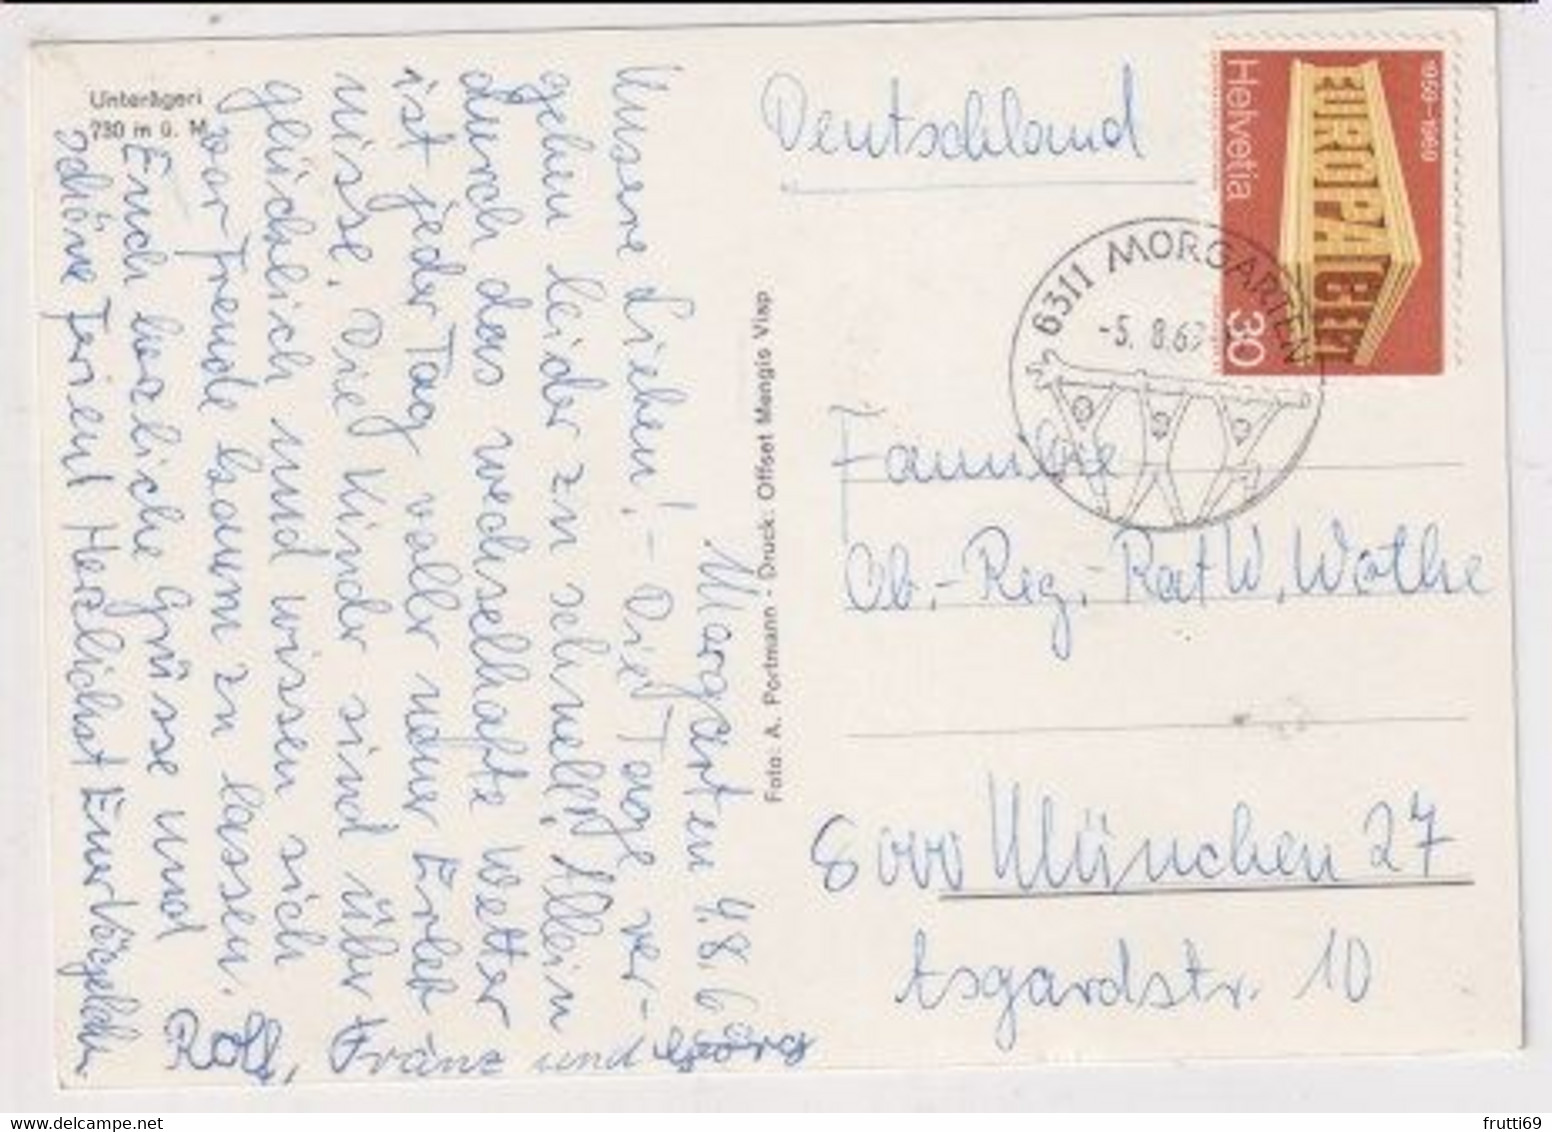 Unterägeri
730 m ü. M.
Morgarten 4.8.6
Unsere Lieben! - Die Tage ver-
gehen leider zu schnell! Allein
durch das wechselhafte Wetter
ist jeder Tag voller neuer Erleb-
nisse. Die Kinder sind über-
glücklich und wissen sich
vor Freude kaum zu lassen.
Euch herzliche Grüsse und
schöne Ferien! Herzlichst Euer
Rolf, Franz und Georg
Foto: A. Portmann - Druck: Offset Mengis Visp
Deutschland
1959-1969
EUROPA CEPT
Helvetia
30
6311 MORGARTEN
-5. 8.69
Familie
Ob.-Reg.-Rat W. Wothe
8000 München 27
Asgardstr. 10
frutti69